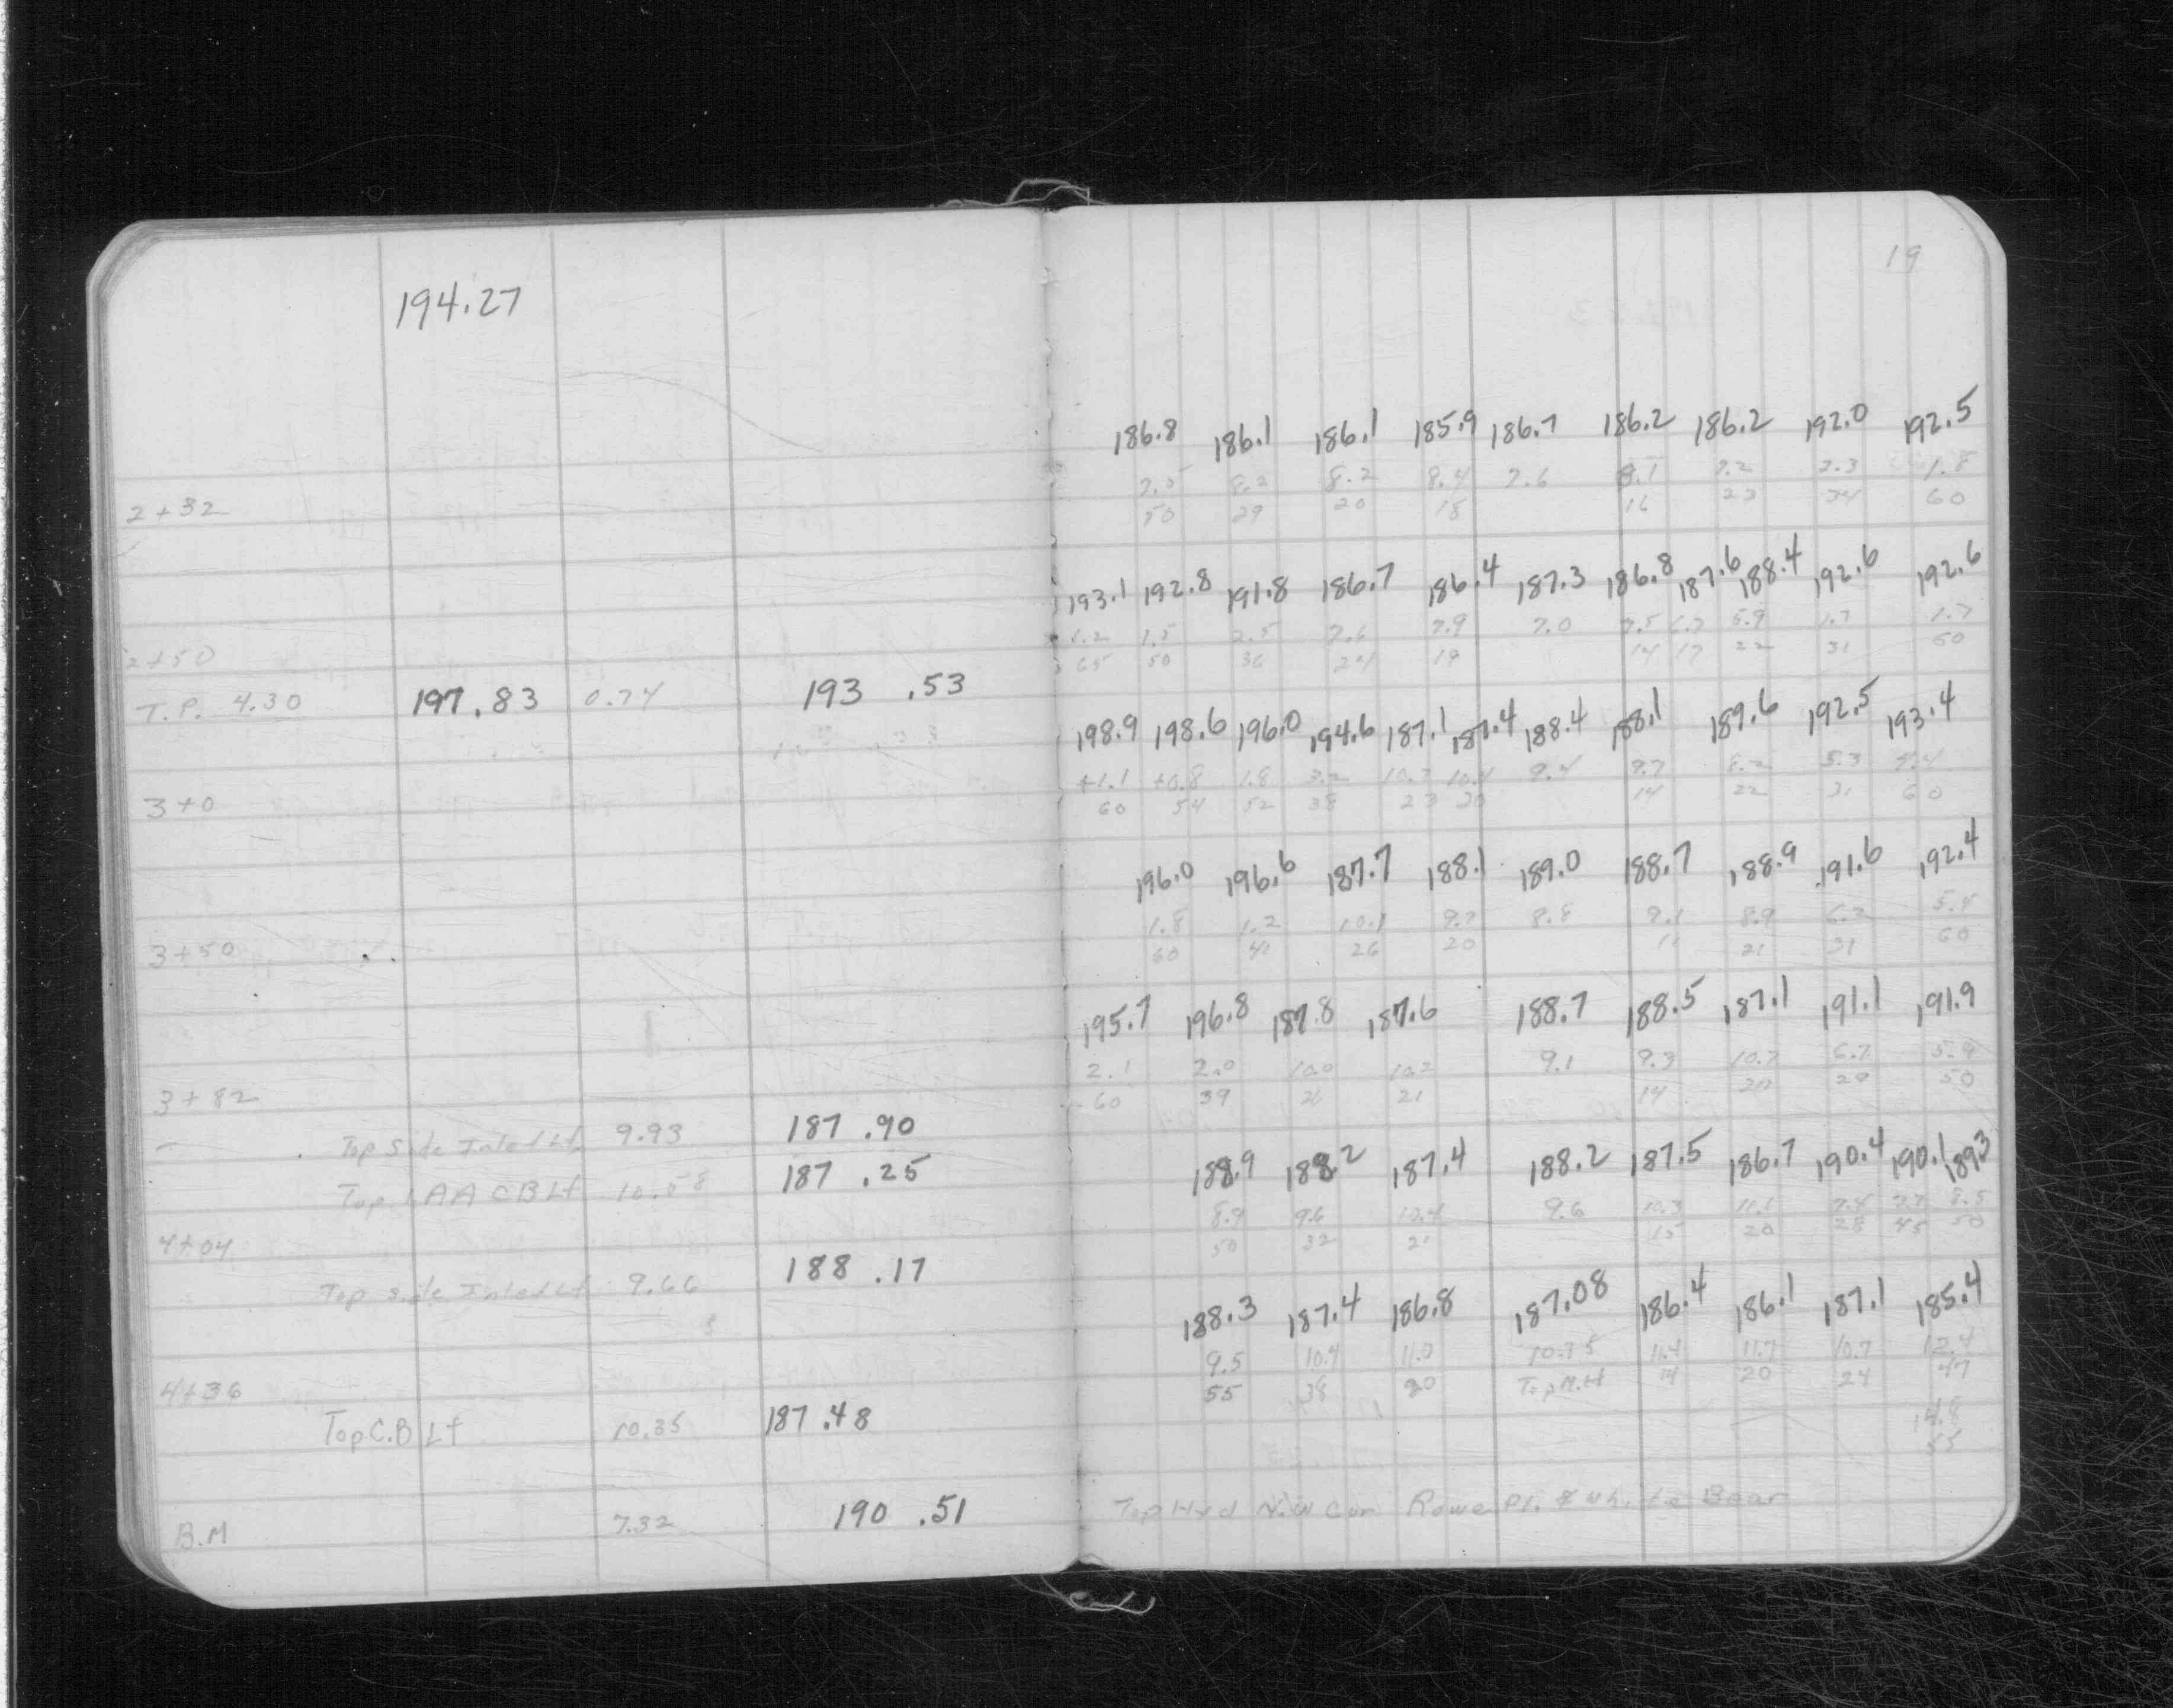 194.27
2+32
2+50
T.P. 4.30 197.83 0.74 193 .53
3+0
3+50
3+82
Top Side Inlet Lt. 9.93 187 .90
Top LAA CB Lt 10.58 187 .25
4+04
Top Side Inlet Lt. 9.66 188 .17
4+36
Top C.B Lt 10.35 187 .48
B.M 7.32 190 .51
19
186.8 186.1 186.1 185.9 186.7 186.2 186.2 192.0 192.5
7.5 8.2 8.2 8.4 7.6 8.1 2.3 1.8
50 29 20 18 16 23 34 60
193.1 192.8 191.8 186.7 186.4 187.3 186.8 187.6 188.4 192.6 192.6
1.2 1.5 2.5 7.6 7.9 7.0 7.5 6.7 5.9 1.7 1.7
65 50 36 24 19 14 17 22 31 60
198.9 198.6 196.0 194.6 187.1 187.4 188.4 188.1 189.6 192.5 193.4
+1.1 +0.8 1.8 3.2 10.7 10.4 9.4 9.7 8.2 5.3 4.4
60 54 52 38 23 20 14 22 31 60
196.0 196.6 187.7 188.1 189.0 188.7 188.9 191.6 192.4
1.8 1.2 10.1 9.7 8.8 9.1 8.9 6.2 5.4
60 41 26 20 21 31 60
195.7 196.8 187.8 187.6 188.7 188.5 187.1 191.1 191.9
2.1 2.0 10.0 10.2 9.1 9.3 10.7 6.7 5.9
60 39 26 21 14 20 29 50
188.9 188.2 187.4 188.2 187.5 186.7 190.4 190.1 189.3
8.9 9.6 10.4 9.6 10.3 11.1 7.4 7.7 8.5
50 32 21 15 20 28 45 50
188.3 187.4 186.8 187.08 186.4 186.1 187.1 185.4
9.5 10.4 11.0 10.75 11.4 11.7 10.7 12.4
55 38 20 Top M.H 14 20 24 47
14.8
55
Top Hyd N.W Cor Rowe Pl. & White Bear